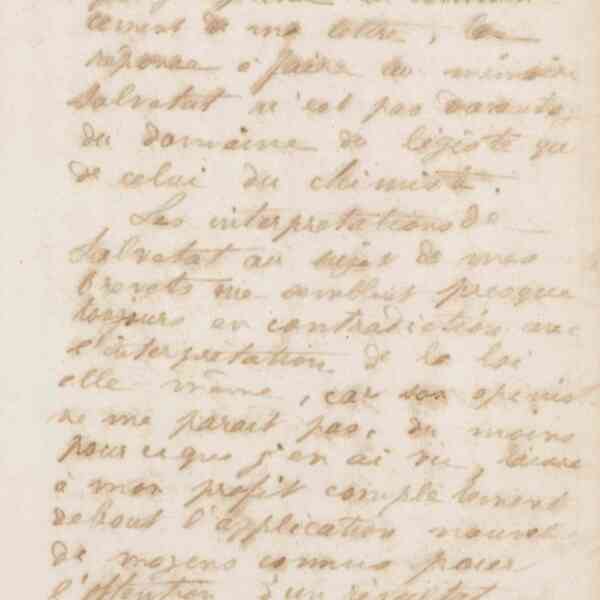 cement de ma lettre, la
réponse à faire au mémoire
Salvetat n'est pas davantage
du domaine de légiste que
de celui du chimiste.
Les interprétations de
Salvetat au sujet de mes
brevets me semblent presque
toujours en contradiction avec
l'interprétation de la loi
elle même, car son opinion
ne me parait pas, du moins
pour ce que j'en ai vu, laisser
à mon profit complètement
debout l'application nouvelle
de moyens connus pour
l'obtention d'un résultat